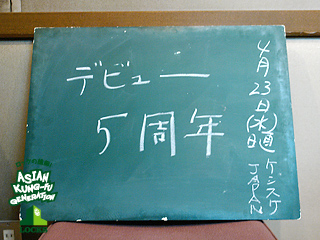 デビュー
5周年
4月23日(水)
日直 ケンスケ
JAPAN
ASIAN
KUNG-FU
GENERATION
LOCKS!